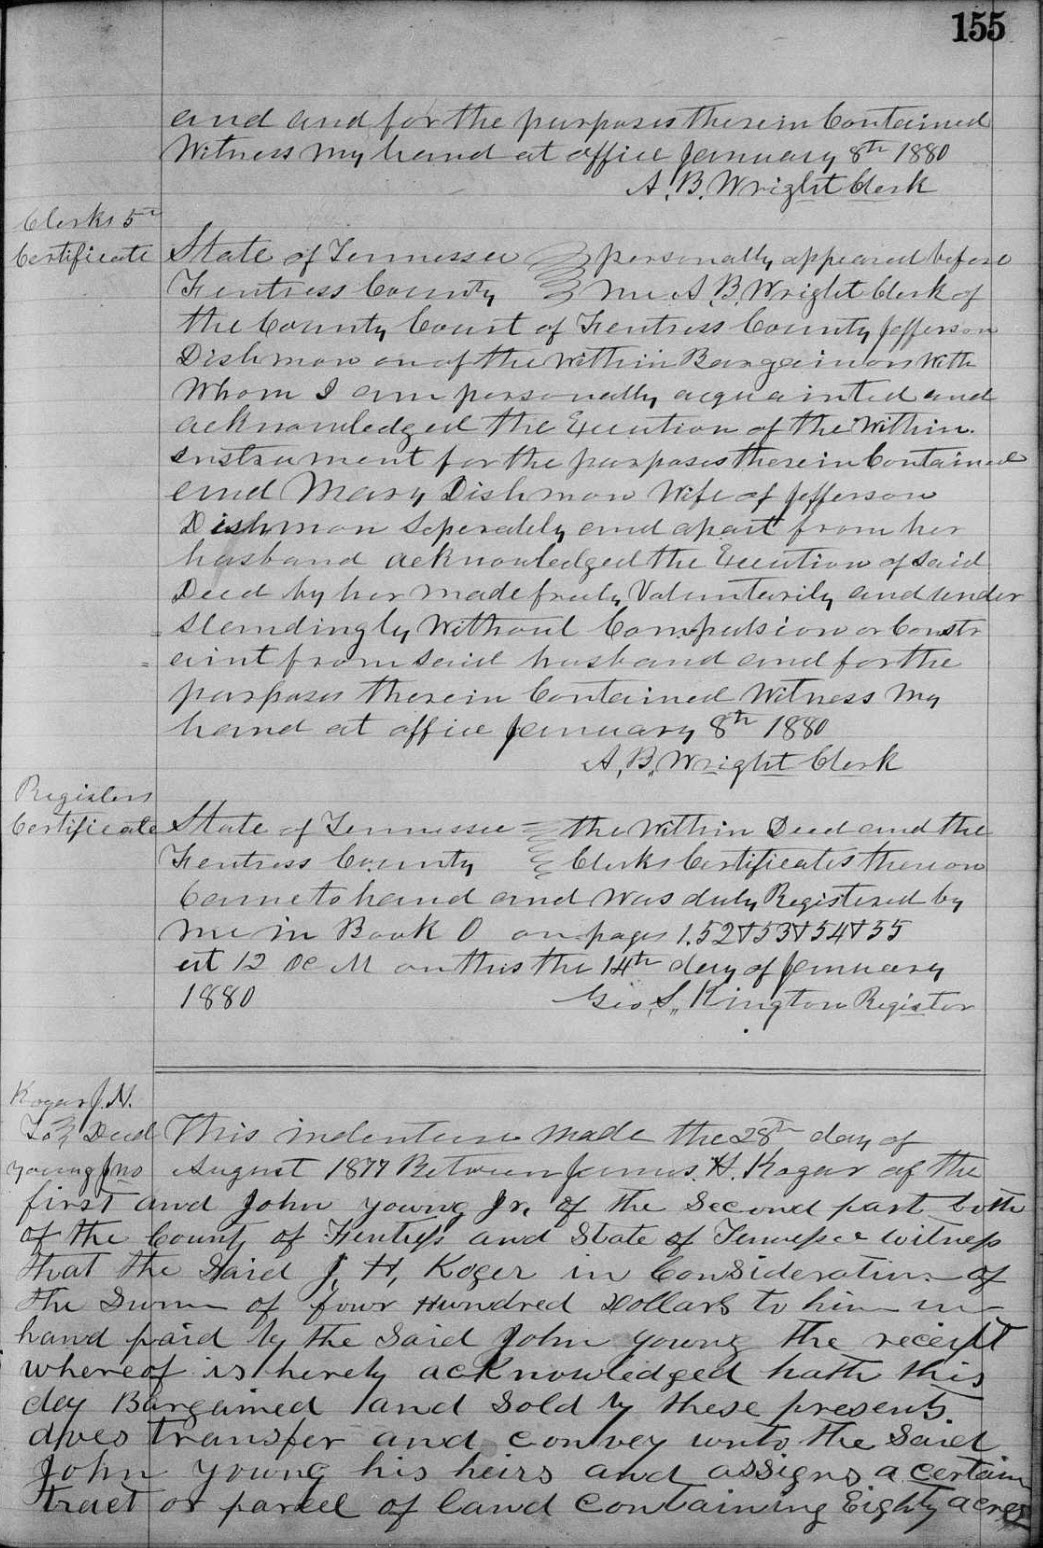 155
and and for the purposes therein Contained
Witness my hand at office January 8th 1880
A. B. Wright Clerk
Clerks 5th
Certificate
State of Tennessee personally appeared before
Fentress County me A. B. Wright Clerk of
the County Court of Fentress County Jefferson
Dishmon on of the within Bargainors With
Whom I am personally acquainted and
acknowledged the Execution of the Within
instrument for the purposes therein Contained
and Mary Dishmon Wife of Jefferson
Dishmon Seperately and apart from her
husband acknowledged the Execution of said
Deed by her made freely Voluntarily and under
standingly Without Compulsion or Constr
aint from said husband and for the
purposes therein Contained Witness My
hand at office January 8th 1880
A. B. Wright Clerk
Registers
Certificate
State of Tennessee the Within Deed and the
Fentress County Clerks Certificates thereon
Came to hand and Was duly Registered by
me in Book O on pages 1.52&53&54&55
at 12 Oc M on this the 14th day of January
1880 Geo. S. Kington Register
Kogar J. N.
To Deed
young Jno
This indenture made the 28th day of
August 1877 Between James. H. Kogar of the
first and John young Jr. of the Second part both
of the County of Fentress and State of Tennessee witness
that the Said J. H. Koger in Consideration of
the Sum of four Hundred Dollars to him in
hand paid by the Said John young the receipt
whereof is hereby acknowledged hath this
day Bargained and Sold by these presents
does transfer and convey unto the Said
John young his heirs and assigns a certain
tract or parcel of land Containing Eighty acres